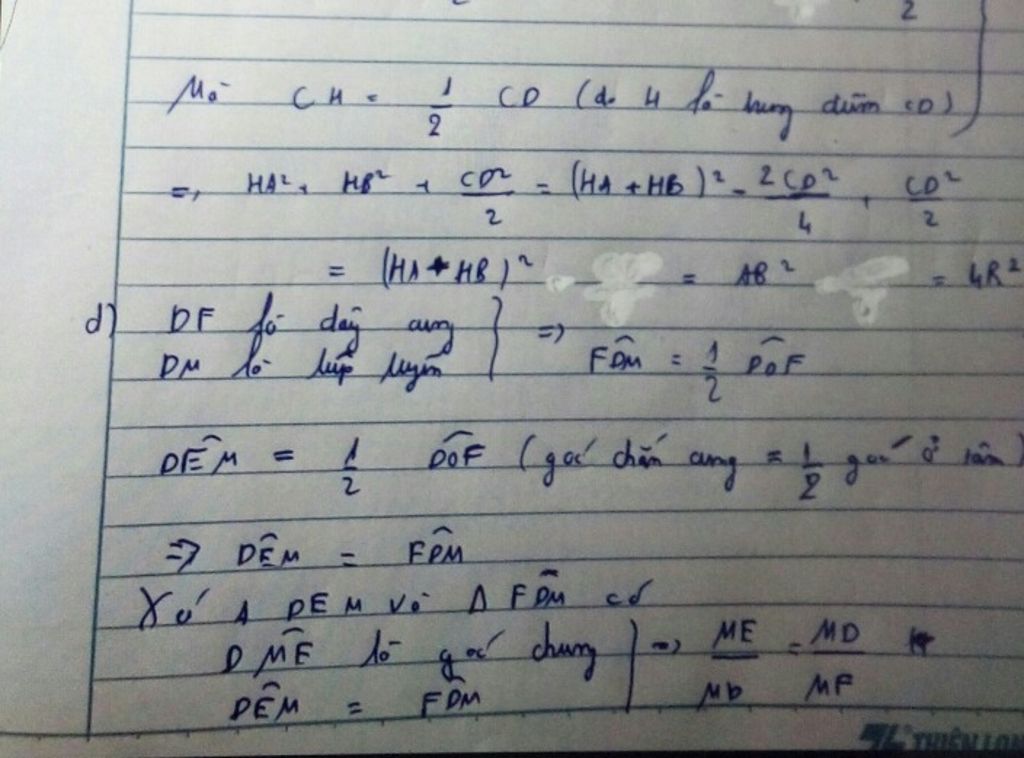 2
Mà CH = 1/2 CD (do H là trung điểm CD)
=> HA² + HB² + CD²/2 = (HA + HB)² - 2CD²/4 + CD²/2
= (HA + HB)² = AB² = 4R²
d) DF là dây cung
DM là tiếp tuyến } => FDM̂ = 1/2 DOF̂
DÊM = 1/2 DÔF (góc chắn cung = 1/2 góc ở tâm)
=> DÊM = FD̂M
Xét Δ DEM và Δ FD̂M có
DM̂E là góc chung
DÊM = FD̂M } => ME/MD = MD/MF
THIÊN LONG